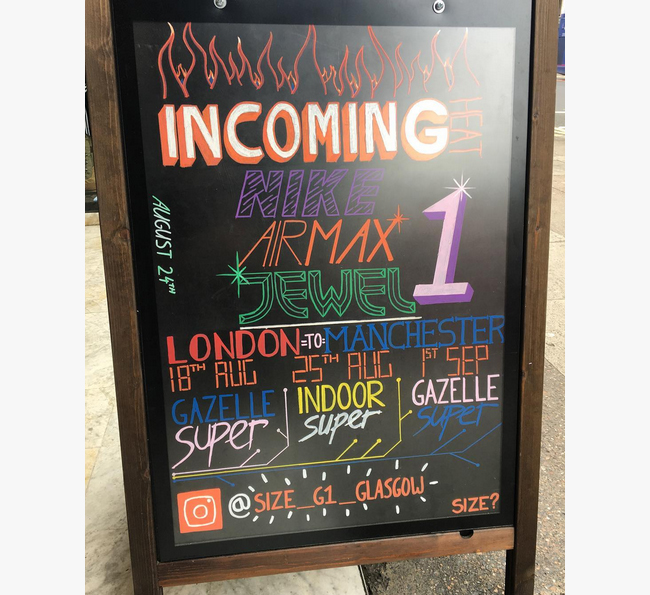 INCOMING
HEAT
NIKE
AIRMAX 1
JEWEL
AUGUST 24TH
LONDON =TO= MANCHESTER
18TH AUG 25TH AUG 1ST SEP
GAZELLE super INDOOR super GAZELLE super
@SIZE_G1_GLASGOW
SIZE?